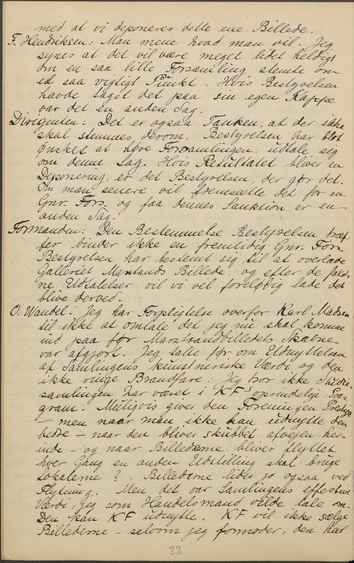 med at vi deponerer dette ene Billede.
F. Hendriksen: Man mene hvad man vil. Jeg
synes at det vil være meget lidet heldigt
om en saa lille Forsamling stemte om
et saa vigtigt Punkt. Hvis Bestyrelsen
havde taget det paa sin egen Kappe
var det en anden Sag.
Dirigenten: Det er ogsaa Tanken, at der ikke
skal stemmes derom. Bestyrelsen har blot
ønsket at høre Forsamlingen udtale sig
om denne Sag. Hvis Resultatet bliver en
Deponering, er det Bestyrelsen, der gør det.
Om man senere vil forelægge det for en
Gnr. Fors. og faa dennes Sanktion er en
anden Sag.
Formanden: Den Bestemmelse Bestyrelsen træf-
fer binder ikke en fremtidig Gnr. Fors.
Bestyrelsen har bestemt sig til at overlade
Galleriet Marstrands Billede, og efter de fald-
ne Udtalelser vil vi vel foreløbig lade det
blive derved.
O. Wandel. Jeg har Forpligtelse overfor Karl Madsen
til ikke at omtale det jeg nu skal komme
ind paa før Marstrandbilledets Skæbne
var afgjort. Jeg talte før om Udnyttelsen
af Samlingens kunstneriske Værdi og den
ikke ringe Brandfare. Jeg tror ikke
samlingen har været i KF's oprindelige Pro-
gram. Muligvis giver den Foreningen
- men naar man ikke kan udnytte den
bedre - naar den bliver skubbet afvejen her-
inde - og naar Billederne bliver flyttet
hver Gang en anden Udstilling skal bruge
Lokalerne? Billederne lider jo ogsaa ved
Flytning. Men det var Samlingens effektive
Værdi jeg som Handelsmand vilde tale om
Den kan KF udnytte. KF vil ikke sælge
Billederne - selvom jeg formoder, den har
22